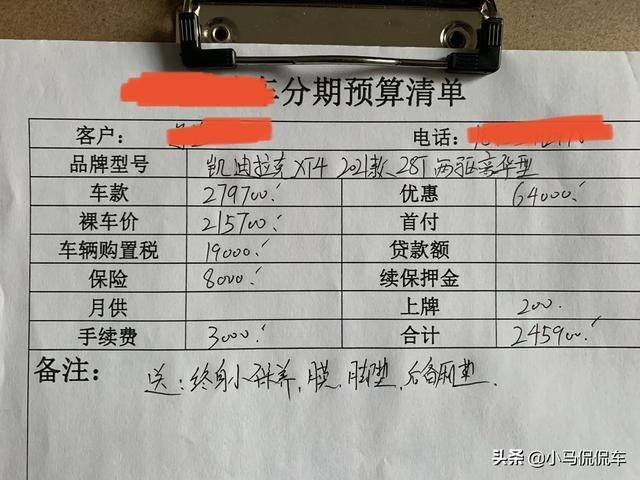 车分期预算清单
客户： 电话：
品牌型号 凯迪拉克 XT4 2021款 28T 两驱豪华型
车款 279700 优惠 64000
裸车价 215700 首付
车辆购置税 19000 贷款额
保险 8000 续保押金
月供 上牌 200
手续费 3000 合计 245900
备注： 送：终身小保养，膜，脚垫，后备厢垫.
头条 @小马侃侃车